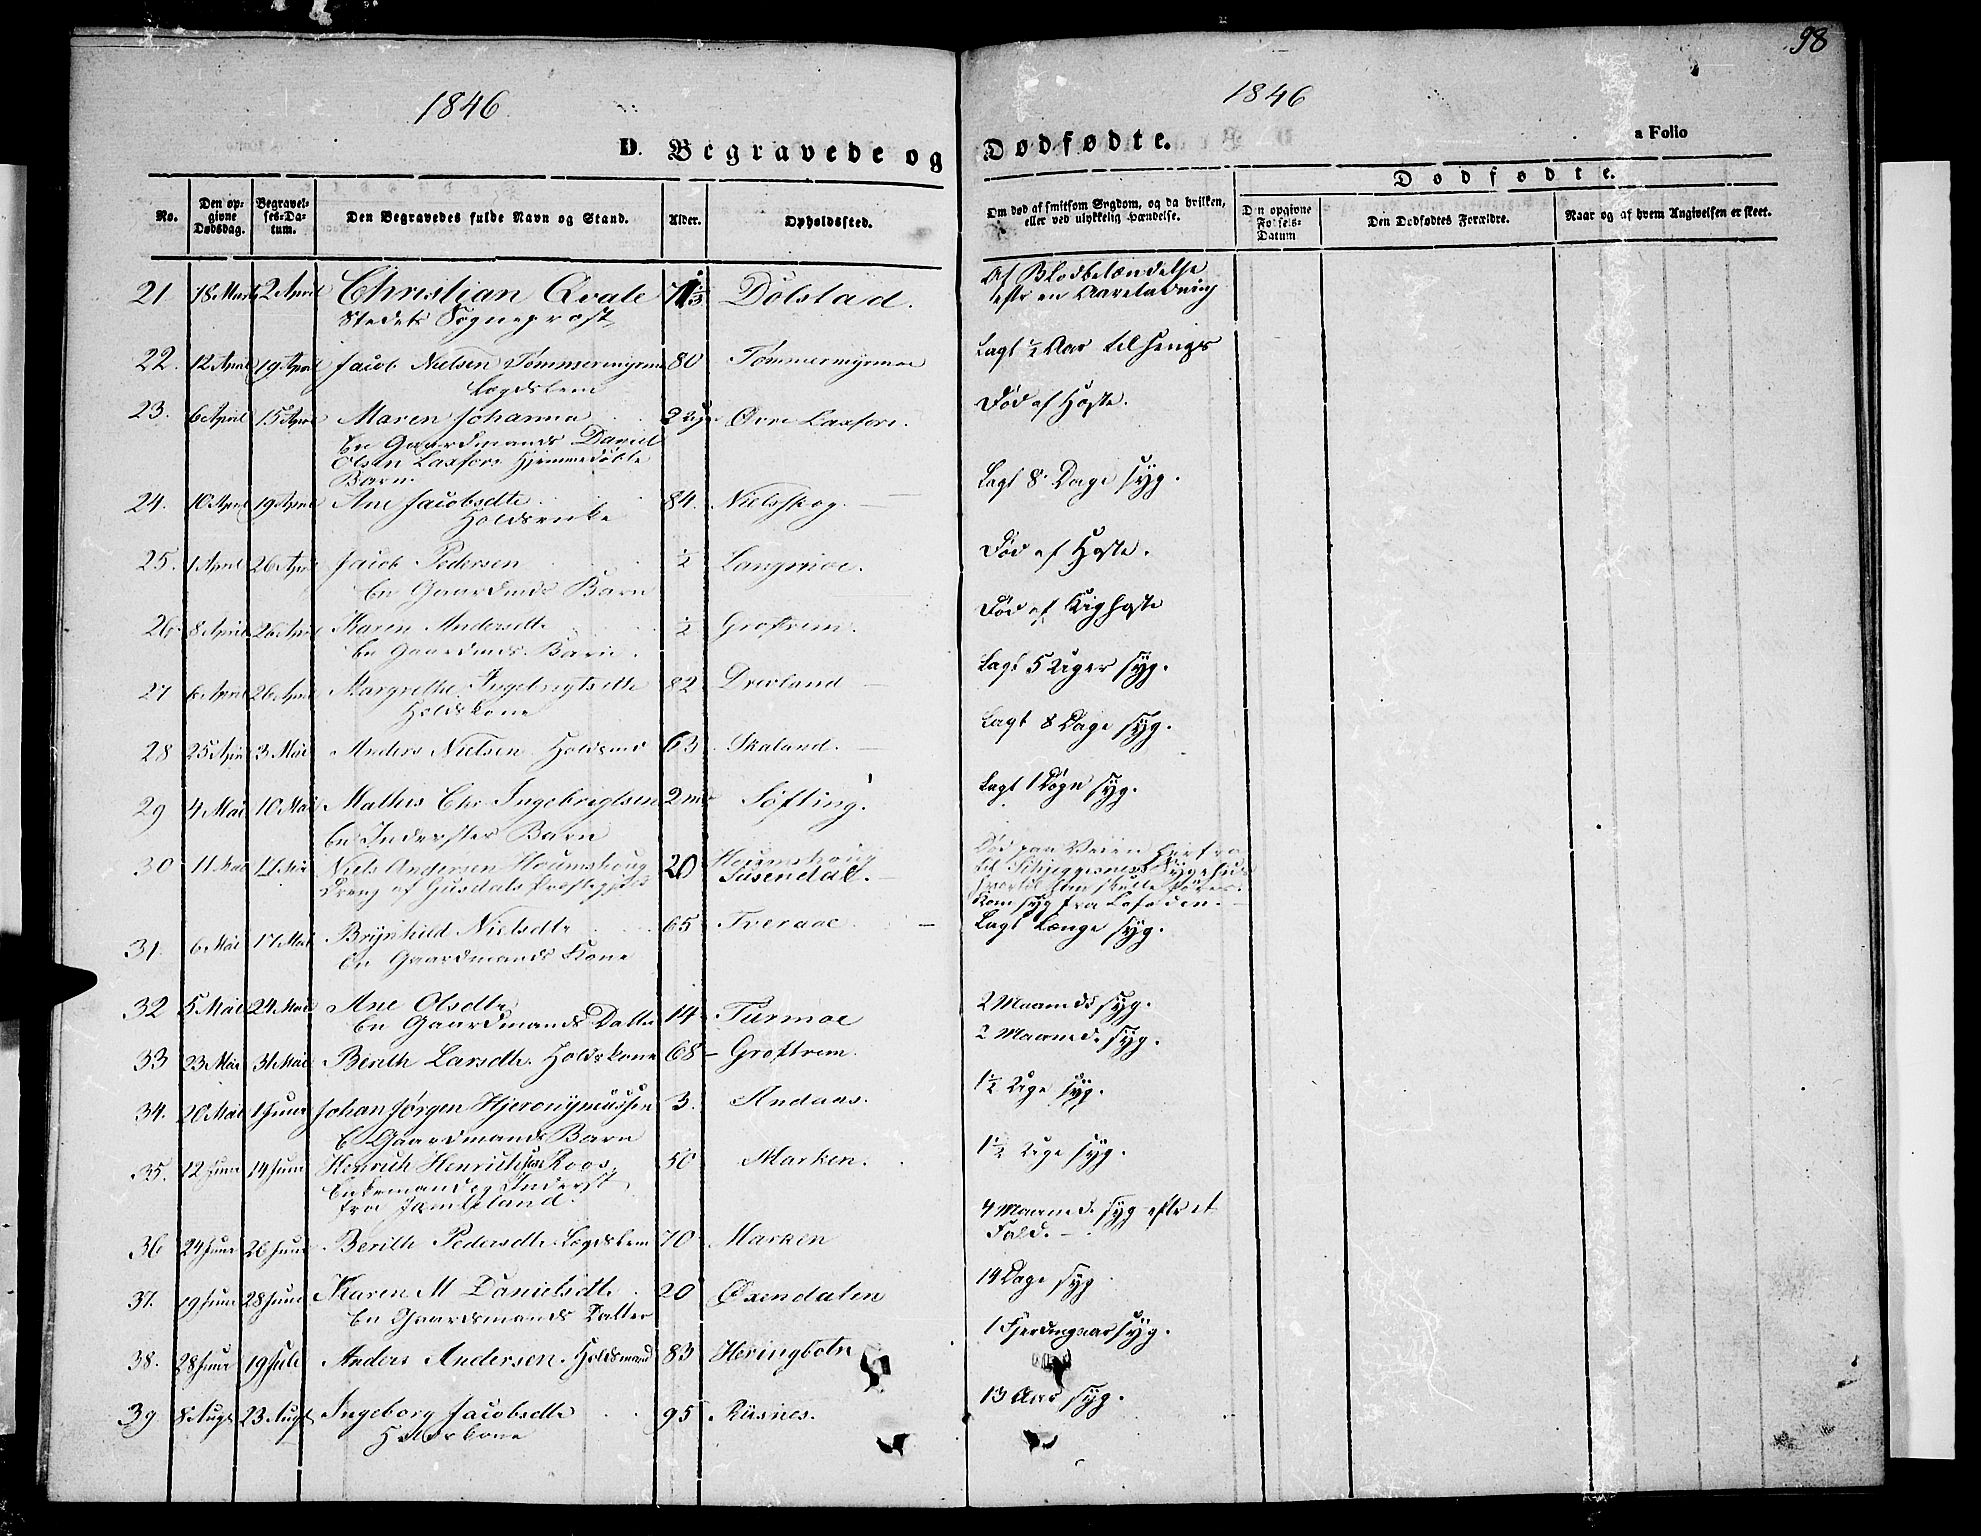 98
1846
1846
D. Begravede og Dødfødte.
a Folio
No.
Den op-
givne
Dødsdag.
Begravel-
ses-Da-
tum.
Den Begravedes fulde Navn og Stand.
Alder.
Opholdssted.
Om død af smitsom Sygdom, og da hvilken,
eller ved ulykkelig Hændelse.
Dødfødte.
Den opgivne
Fødsels-
Datum
Den Dødfødtes Forældre.
Naar og af hvem Angivelsen er skeet.
21 18 Marts 2 April Christian Qvale 71 1/3 Dolstad. Af Blodbelændelse
Stedets Sogneprost efter en Aareladning
22. 12 April 19 April Jacob Nielsen Tømmermyrmo 80 Tømmermyrmoe Lagt ½ Aar tilsengs
Lægdslem
23. 6 April 15 April Maren Johanna 2 Uger Øvre Laxfors. Død af Hoste.
En Gaardmands Daniel
Olsen Laxfors Hjemmedøbte
Barn.
24. 10 April 19 April Ane Jacobsdtr 84. Nielsskog. Lagt 8 Dage syg.
Holdsenke
25. 1 April 26 April Jacob Pedersen ½ Langmoe. Død af Hoste.
En Gaardmds Barn
26. 8 April 26 April Karen Andersdtr ½ Groftrem. Død af Kighoste
En Gaardmds Barn.
27 6 April 26 April Margrethe Ingebrigtsdtr 82 Drevland Lagt 5 Uger syg.
Holdskone
28 25 April 3 Mai Anders Nielsen Holdsmd 63. Skaland. Lagt 8 Dage syg.
29 4 Mai 10 Mai Mathis Chr Ingebrigtsen 2 mr Søfting. Lagt 1 Døgn syg.
En Inderstes Barn
30 11 Mai 17 Mai Niels Andersen Houmshoug 20 Houmshoug Død paa Veien herfra
Dreng af Susendal. til Skjeggesnes Sygehuus
hvortil han skulle føres.
Kom syg fra Lofoden.
31. 6 Mai 17 Mai Brynhild Nielsdtr 65 Tveraae Lagt længe syg.
En Gaardmands Kone
32 5 Mai 24 Mai Ane Olsdtr 14 Turmoe 2 Maaneds syg.
En Gaardmands Datter
33 23 Mai 31 Mai Berith Larsdtr. Holdskone 68 Groftrem. 2 Maaneds syg.
34. 20 Mai 1 Juni Johan Jørgen Hjeronymussen 3. Andaas. 1½ Uge syg.
E Gaardmands Barn
35. 12 Juni 14 Juni Henrich Henrichsen Roos. 50 Marken. 1½ Uge syg.
Enkemand og Inderst
fra Jemteland.
36 24 Juni 26 Juni Berith Pedersdtr Lægdslem 70 Marken 4 Maaneds syg efter et
Fald.
37. 19 Juni 28 Juni Karen M Danielsdtr. 20 Øxendalen 14 Dage syg
En Gaardsmands Datter
38. 28 Juni 19 Juli Anders Andersen. Holdsmand 83 Heringbotn 1 Fjerdingaar syg.
39 8 Augt 23 Augt Ingeborg Jacobsdtr 95 Riisnes. 13 Aar syg.
Holdskone